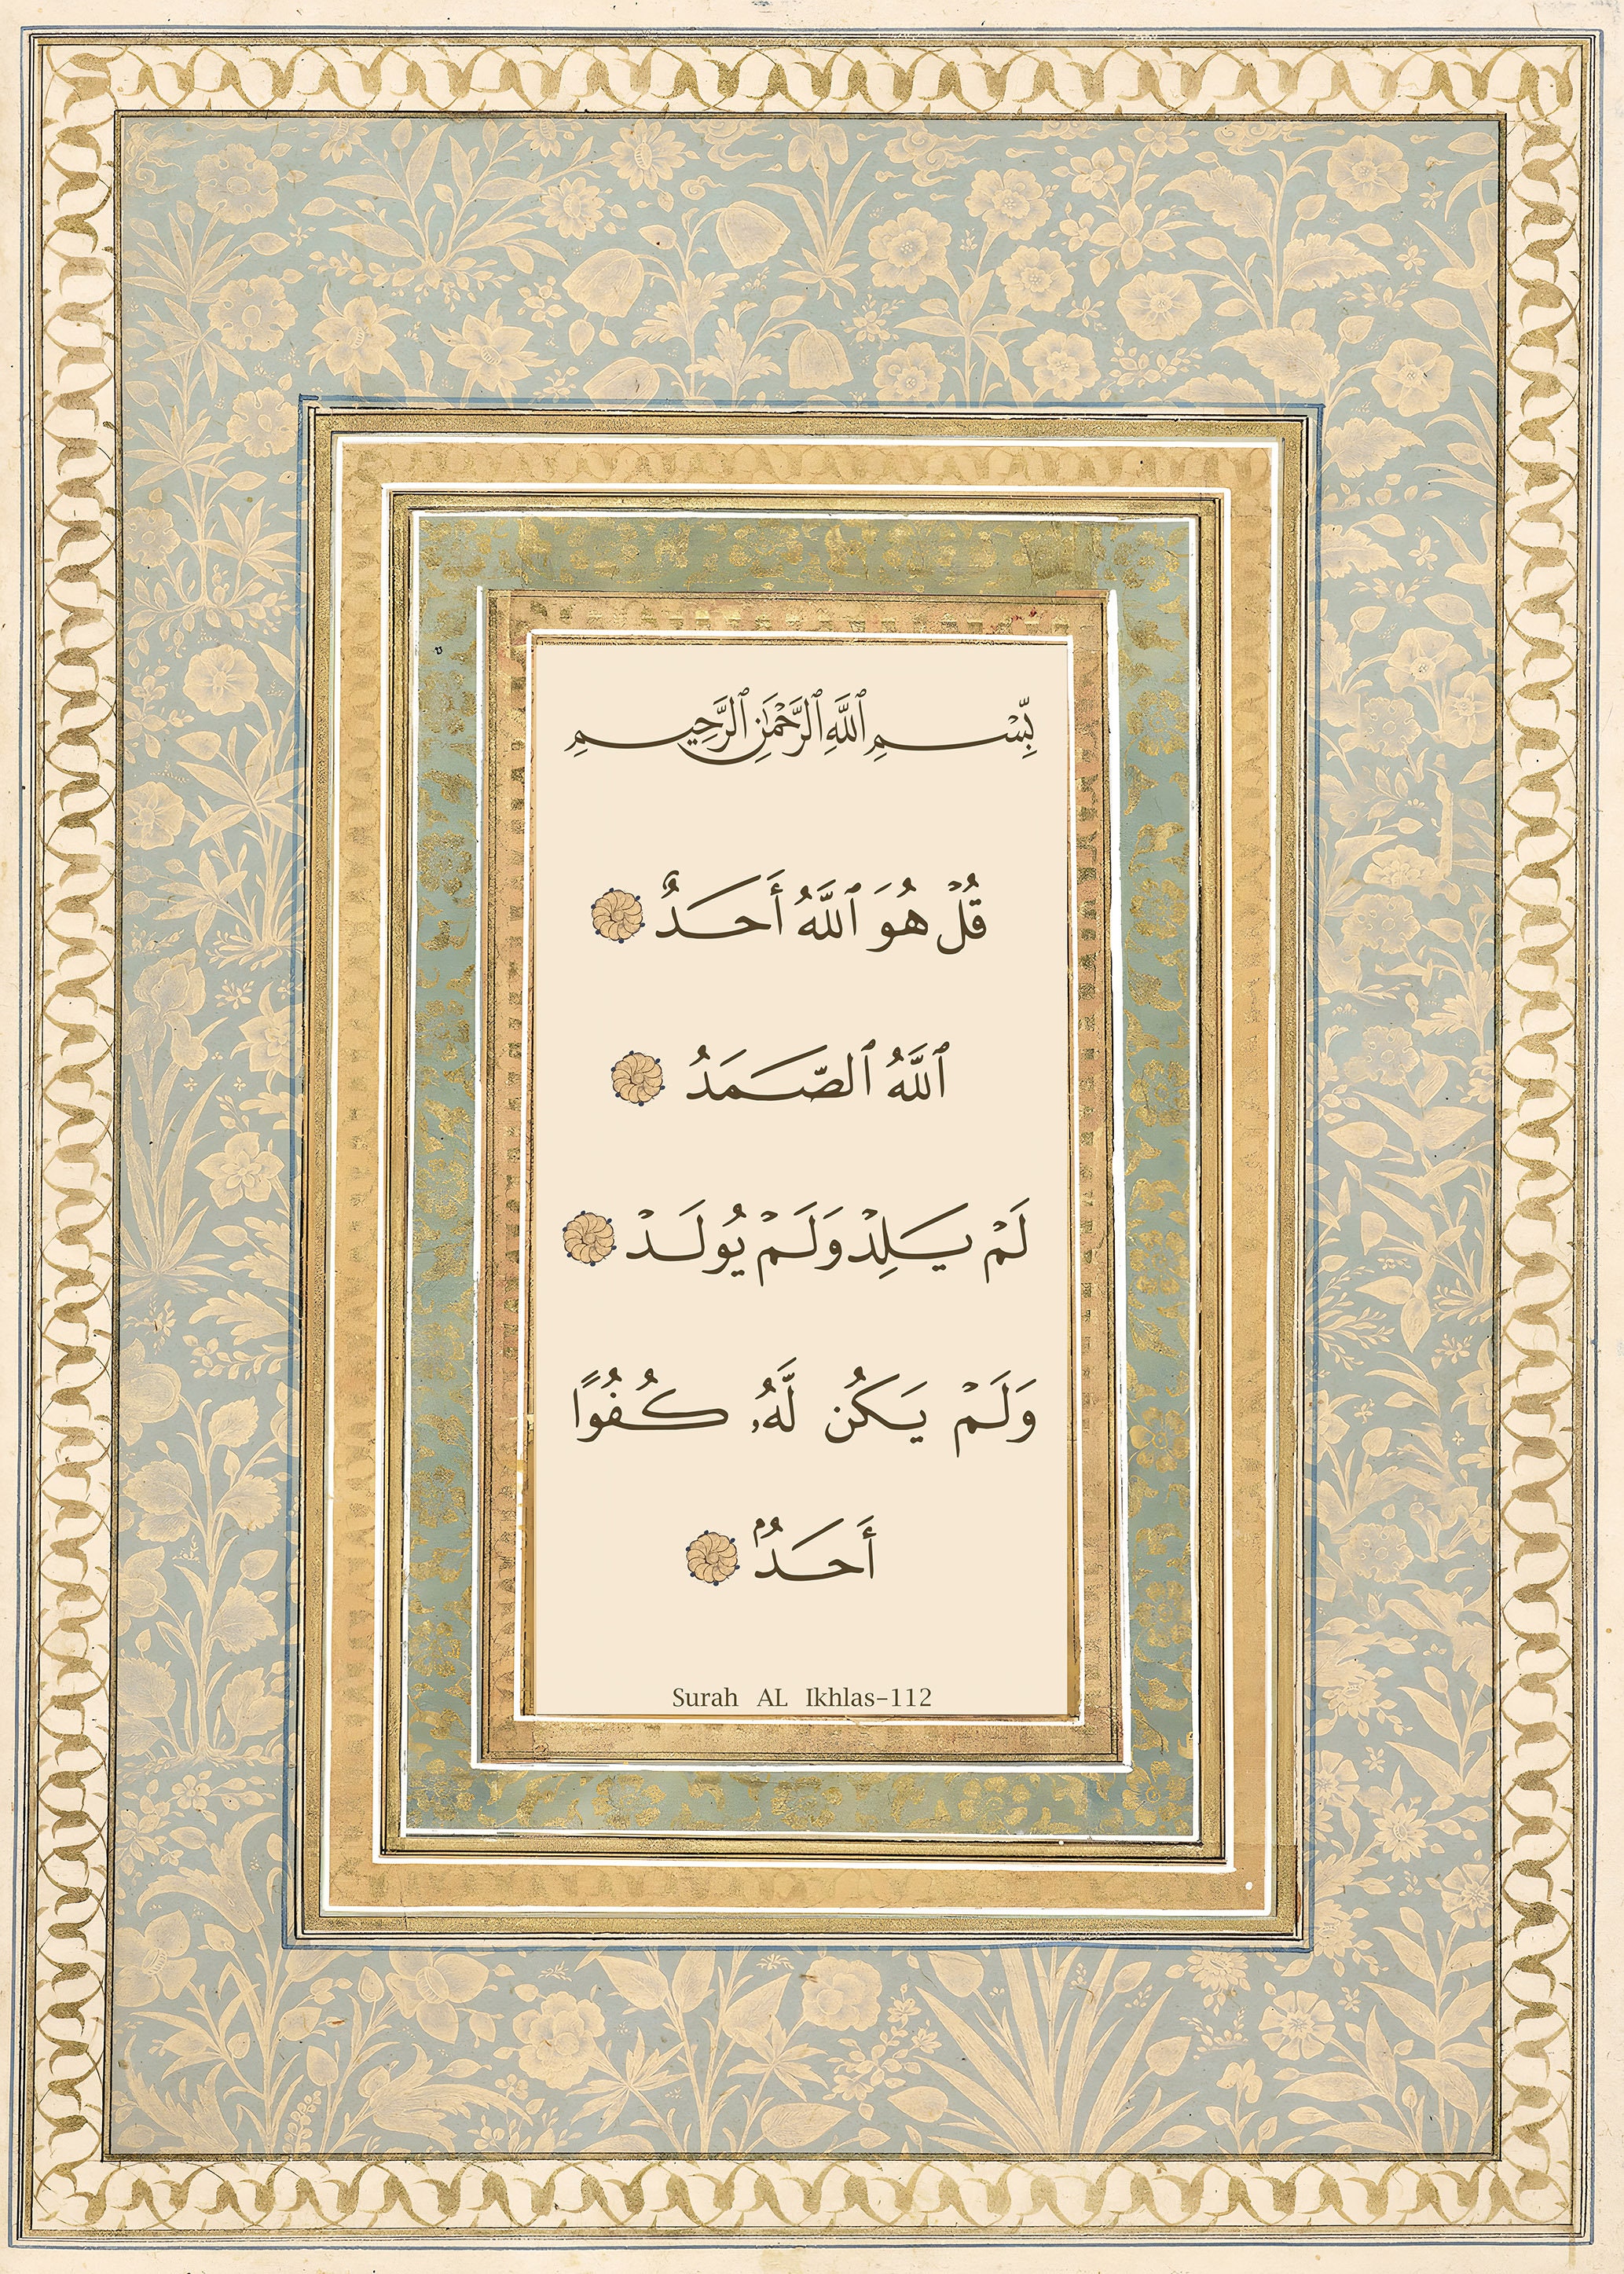 بِّسْمِ ٱللَّهِ ٱلرَّحْمَٰنِ ٱلرَّحِيمِ
قُلْ هُوَ ٱللَّهُ أَحَدٌ
ٱللَّهُ ٱلصَّمَدُ
لَمْ يَلِدْ وَلَمْ يُولَدْ
وَلَمْ يَكُن لَّهُۥ كُفُوًا
أَحَدٌۢ
Surah AL Ikhlas-112